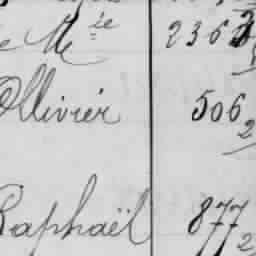 e M.ée 236
Ollivier 506
2
Raphaël 877
2